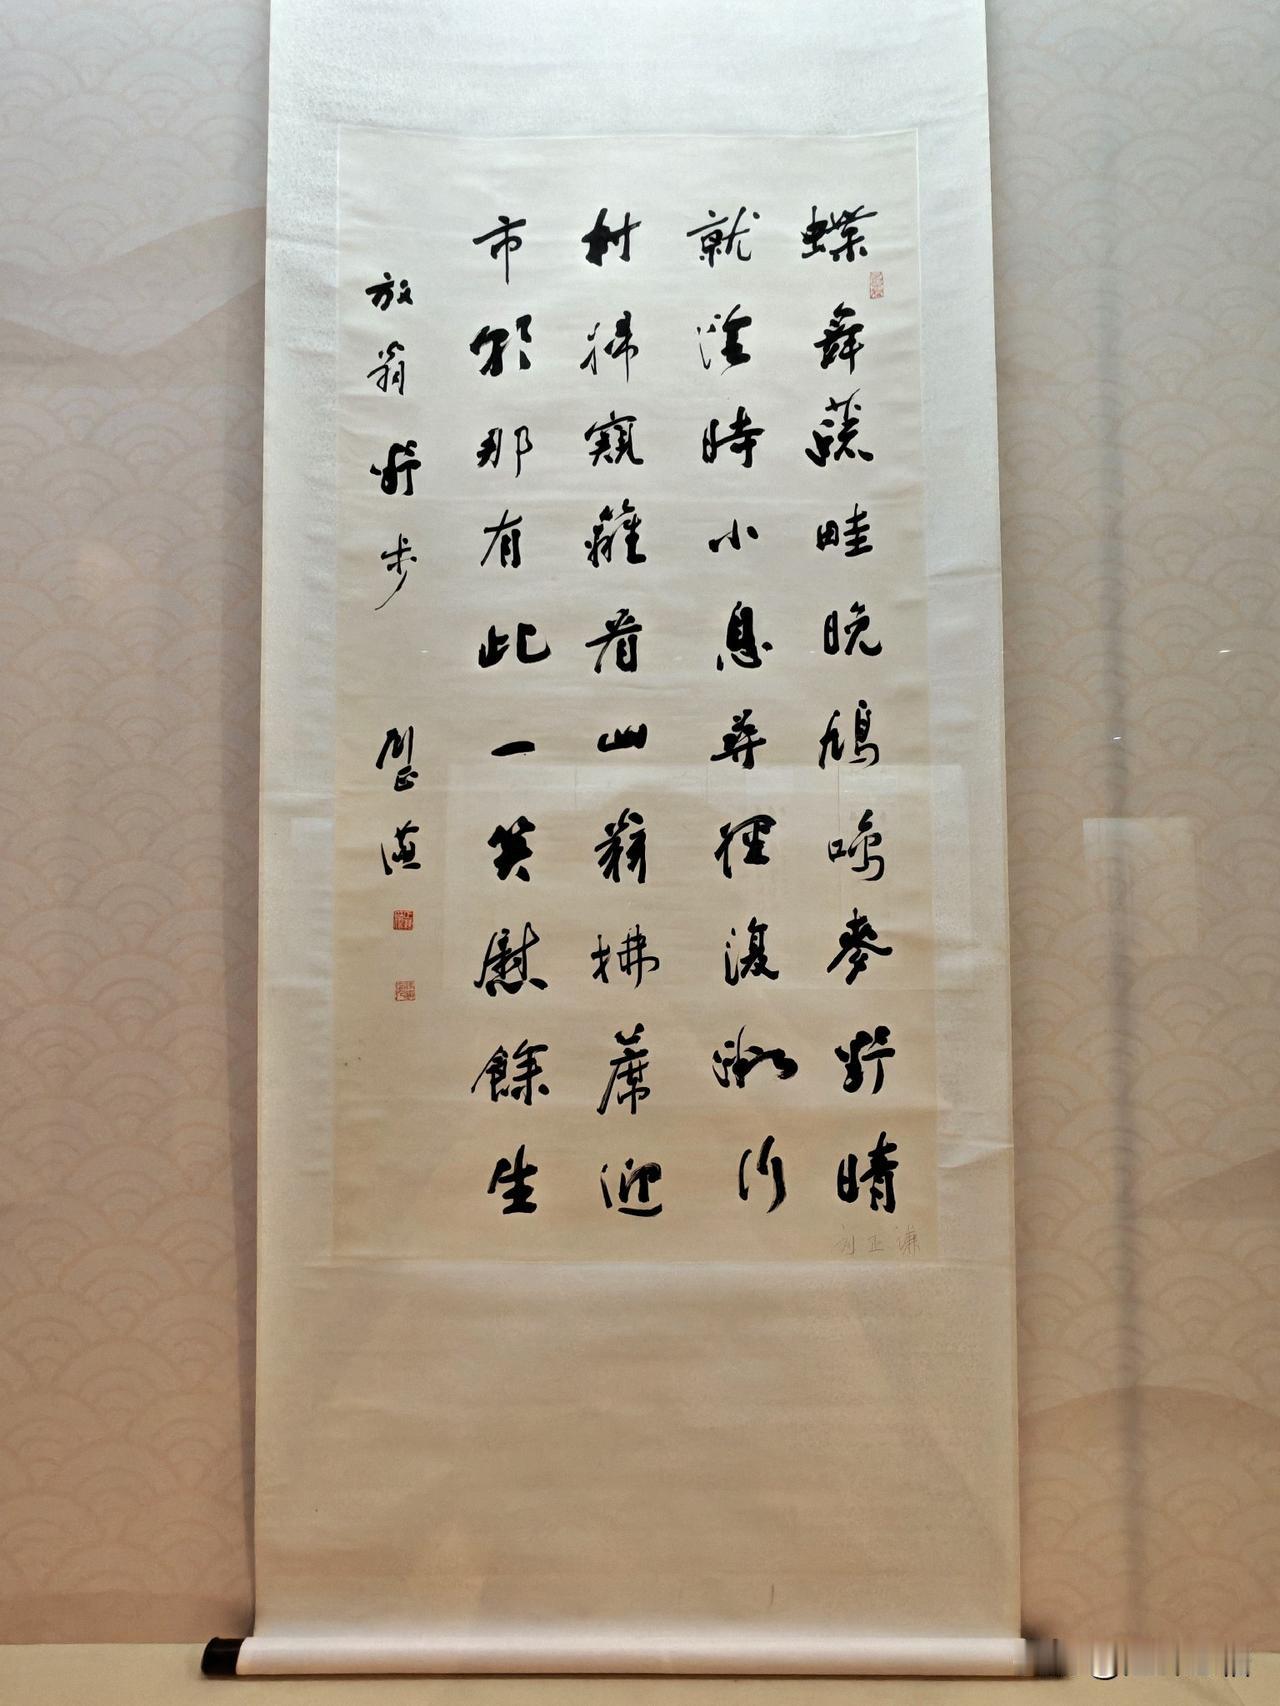 蝶舞蔬畦晚鳩鳴麥野晴
就陰時小息尋徑復微行
村婦窺籬看山翁拂席迎
市朝那有此一笑慰餘生
放翁野步 劉正謙
刘正谦